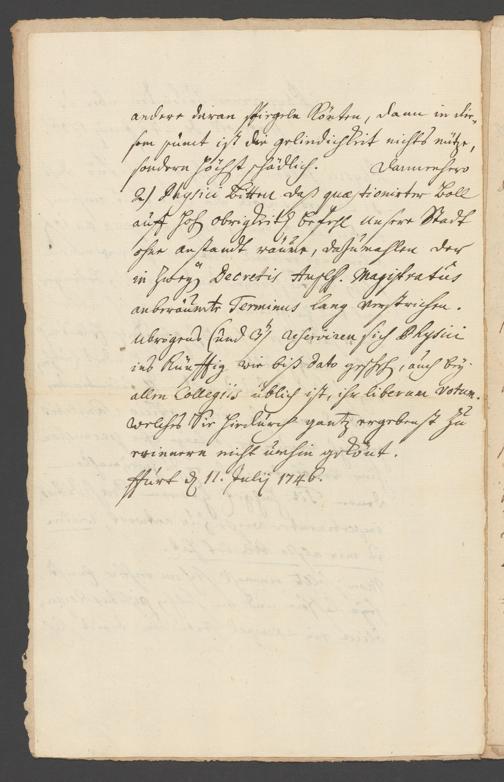 andere daran spiegeln könten, dann in die-
sem punct ist die gelindichkeit nichts nütze,
sondern höchst schädlich. Dannenhero
2) Physici bitten daß quaestionirter Boll
auff hoh obrigkeitl befehl unsere Stadt
ohne anstandt räume, dahzumahlen der
in Decretis Ampliss. Magistratus
anberaumte Terminus lang verstrichen.
übrigens (und 3) reserviren sich Physici
ins künfftig wie biß dato gescheh, auch bey
allen Collegiis üblich ist, ihr liberum votum.
welches Sie hierdurch gantz ergebenst zu
erinnern nicht umhin gekönt.
ffurt d 11. Julij 1746.